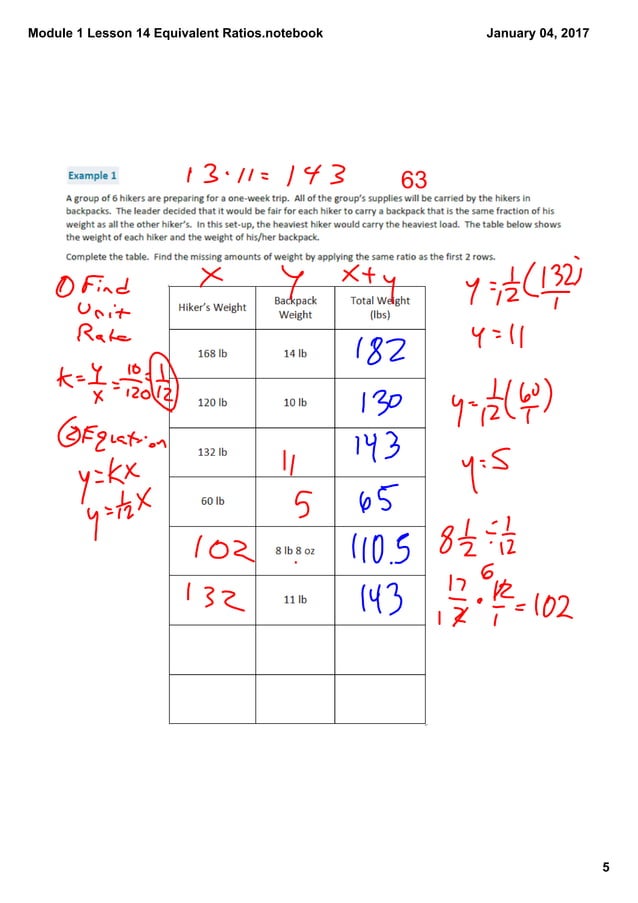 Module 1 Lesson 14 Equivalent Ratios.notebook January 04, 2017
Example 1 13 · 11 = 143 63
A group of 6 hikers are preparing for a one-week trip. All of the group's supplies will be carried by the hikers in
backpacks. The leader decided that it would be fair for each hiker to carry a backpack that is the same fraction of his
weight as all the other hiker's. In this set-up, the heaviest hiker would carry the heaviest load. The table below shows
the weight of each hiker and the weight of his/her backpack.
Complete the table. Find the missing amounts of weight by applying the same ratio as the first 2 rows.
① Find
Unit
Rate
k = y/x = 10/120 = 1/12
② Equation
y = kx
y = 1/12 x
x y x + y
Hiker's Weight Backpack Weight Total Weight (lbs)
168 lb 14 lb 182
120 lb 10 lb 130
132 lb 11 143
60 lb 5 65
102 8 lb 8 oz 110.5
132 11 lb 143
y = 1/12 (132/1)
y = 11
y = 1/12 (60/1)
y = 5
8 1/2 ÷ 1/12
17/2 · 12/1 = 102
1 6
5